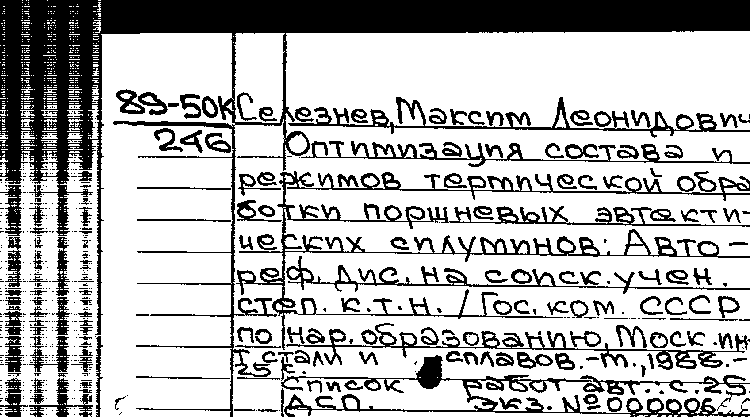 89-50К Селезнев, Максим Леонидович
246 Оптимизация состава и
режимов термической обра
ботки поршневых эвтекти-
ческих силуминов: Авто-
реф. дис. на соиск. учен.
степ. к.т.н. / Гос. ком. СССР
по нар. образованию, Моск. ин-
т стали и сплавов. -М., 1988.-
25 с.
Список работ авт.: с. 25
ДСП. Экз. № 000006